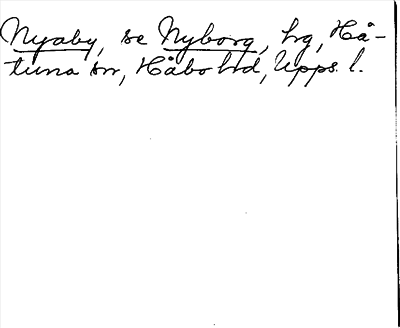 Nyaby, se Nyborg, hg, Hå-
tuna sn, Håbo hd, Upps. l.